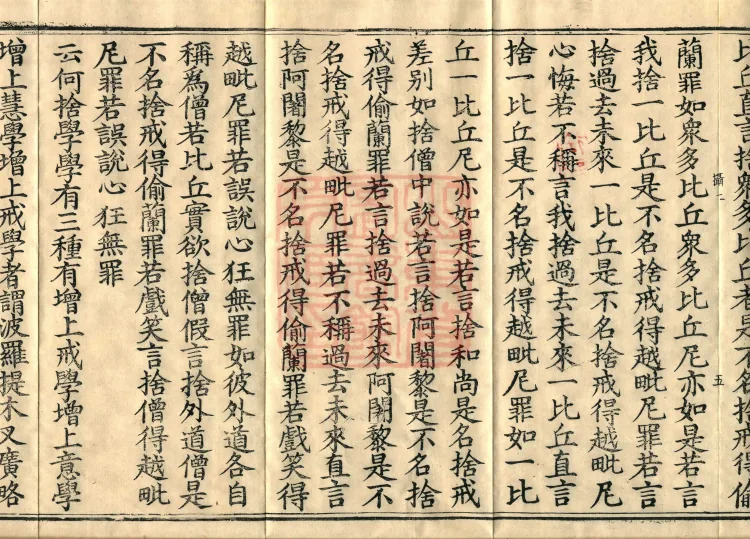 比丘直言捨衆多比丘者是不名捨戒得偷
蘭罪如衆多比丘衆多比丘尼亦如是若言
我捨一比丘是不名捨戒得越毗尼罪若言
捨過去未來一比丘是不名捨戒得越毗尼
心悔若不稱言我捨過去未來一比丘直言
捨一比丘是不名捨戒得越毗尼罪如一比
丘一比丘尼亦如是若言捨和尚是名捨戒
差别如捨僧中說若言捨阿闍黎是不名捨
戒得偷蘭罪若言捨過去未來阿闍黎是不
名捨戒得越毗尼罪若不稱過去未來直言
捨阿闍黎是不名捨戒得偷蘭罪若戲笑得
越毗尼罪若誤說心狂無罪如彼外道各自
稱為僧若比丘實欲捨僧假言捨外道僧是
不名捨戒得偷蘭罪若戲笑言捨僧得越毗
尼罪若誤說心狂無罪
云何捨學學有三種有增上戒學增上意學
增上慧學增上戒學者謂波羅提木叉廣略
攝二
五